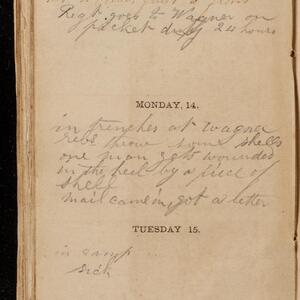 Regt goes to Wagner on
picket duty 24 hours
MONDAY, 14.
in trenches at Wagner
rebs throw some shells
one man gets wounded
in the heel by a piece of
shell
mail came in, got a letter
TUESDAY 15.
in camp
sick